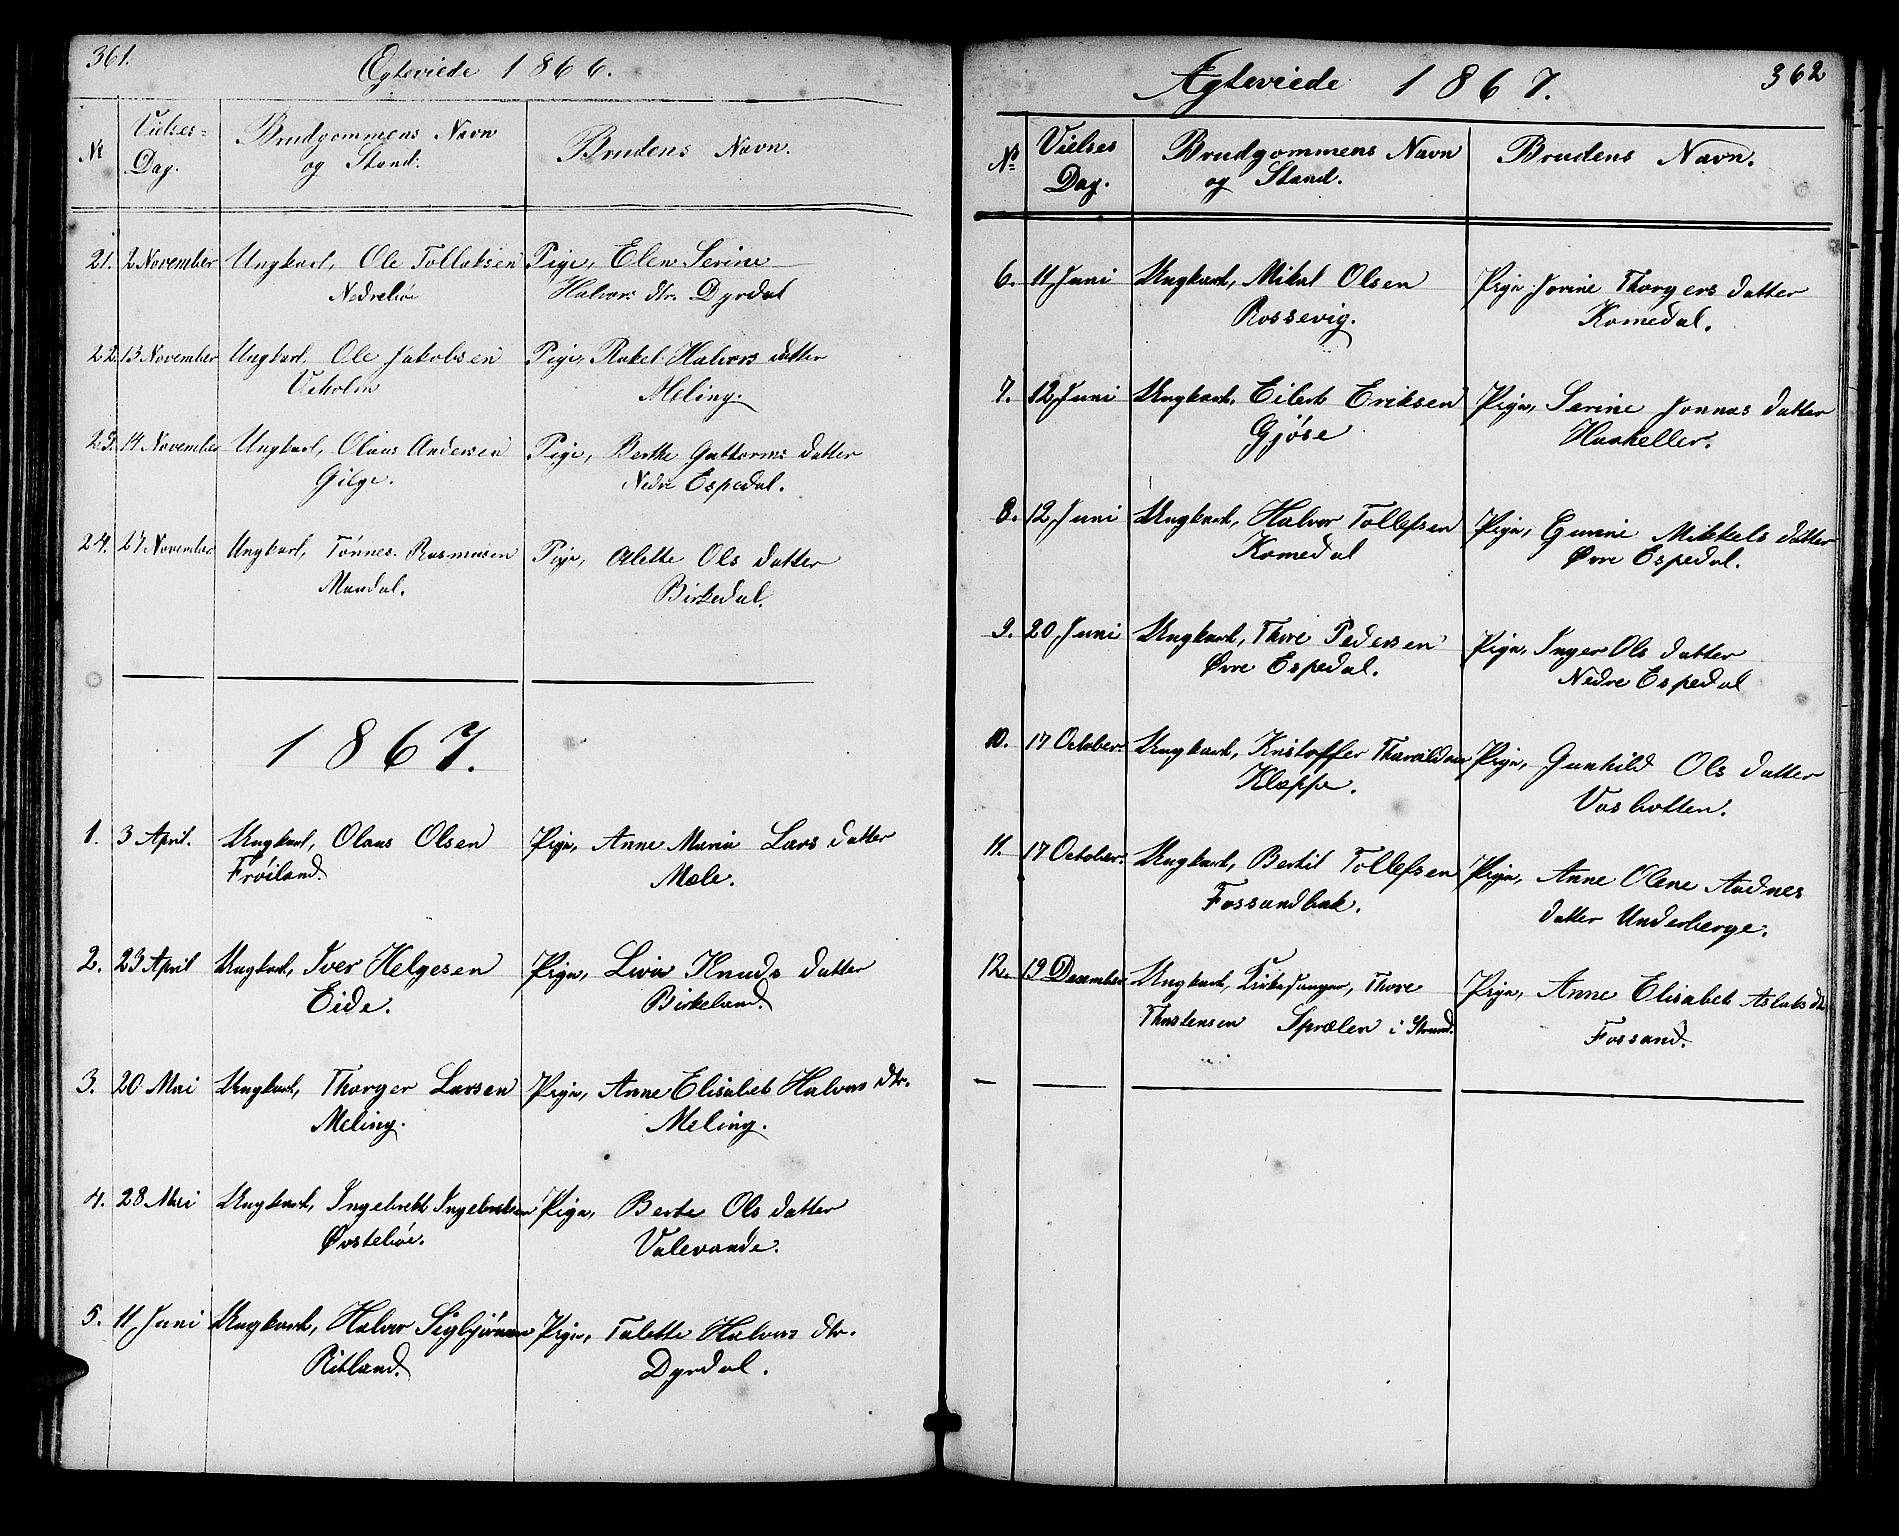 361.
Ægteviede 1866.
№ Vielses- Dag. Brudgommens Navn og Stand. Brudens Navn.
21. 2 November Ungkarl, Ole Tollaksen Pige, Elen Serine
Nedrebøe Halvors dtr. Dyrdal
22. 13 November Ungkarl, Ole Jakobsen Pige, Rakel Halvors datter
Veholm Meling.
23. 14 November Ungkarl, Olaus Andersen Pige, Berthe Guttorms datter
Gilge. Nedre Espedal.
24. 27 November Ungkarl, Tønnes Rasmusen Pige, Alette Ols datter
Mandal. Birkedal.
1867.
1. 3 April. Ungkarl, Olaus Olsen Pige, Anne Maria Lars datter
Frøiland. Mæle.
2. 23 April Ungkarl, Iver Helgesen Pige, Livia Knuds datter
Eide. Birkeland.
3. 20 Mai Ungkarl, Thorger Larsen Pige, Anne Elisabet Halvors dtr.
Meling. Meling.
4. 28 Mai Ungkarl, Ingebrett Ingebretsen Pige, Berte Ols datter
Østebøe. Valevande.
5. 11 Juni Ungkarl, Halvor Sigbjørnsen Pige, Talette Halvors dtr.
Ritland. Dyrdal.
362
Ægteviede 1867.
№ Vielses Dag. Brudgommens Navn og Stand. Brudens Navn.
6. 11 Juni Ungkarl, Mikal Olsen Pige Jorine Thorgers datter
Rossevig. Komedal.
7. 12 Juni Ungkarl, Eilert Eriksen Pige, Serine Jonnas datter
Gjøse Haukeller.
8. 12 Juni Ungkarl, Halvor Tollefsen Pige, Gurine Mikkels datter
Komedal Øvre Espedal.
9. 20 Juni Ungkarl, Thore Pedersen Pige, Inger Ols datter
Øvre Espedal. Nedre Espedal
10. 17 October. Ungkarl, Kristoffer Tharaldsen Pige, Gunhild Ols datter
Kleppe. Vasbotten.
11. 17 October. Ungkarl, Bertil Tollefsen Pige, Anne Olene Audnes
Fossandbak. datter Underberge.
12. 19 December Ungkarl, Kirkesanger, Thore Pige, Anne Elisabet Aslaks dtr
Thostensen Sprælen i Strand. Fossand.